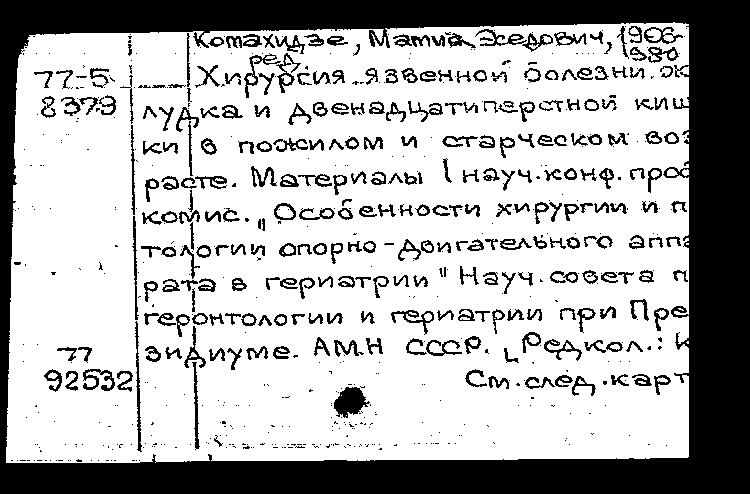 Комахидзе, Мамиа Эседович, 1908-
1980
ред.
77-5 Хирургия язвенной болезни ж
8379 лудка и двенадцатиперстной киш
ки в пожилом и старческом воз
расте. Материалы I науч. конф. проб
комис. "Особенности хирургии и п
тологии опорно-двигательного аппа
рата в гериатрии" Науч. совета п
геронтологии и гериатрии при Пре
77 зидиуме. АМН СССР. [Редкол.: К
92532 См. след. карт